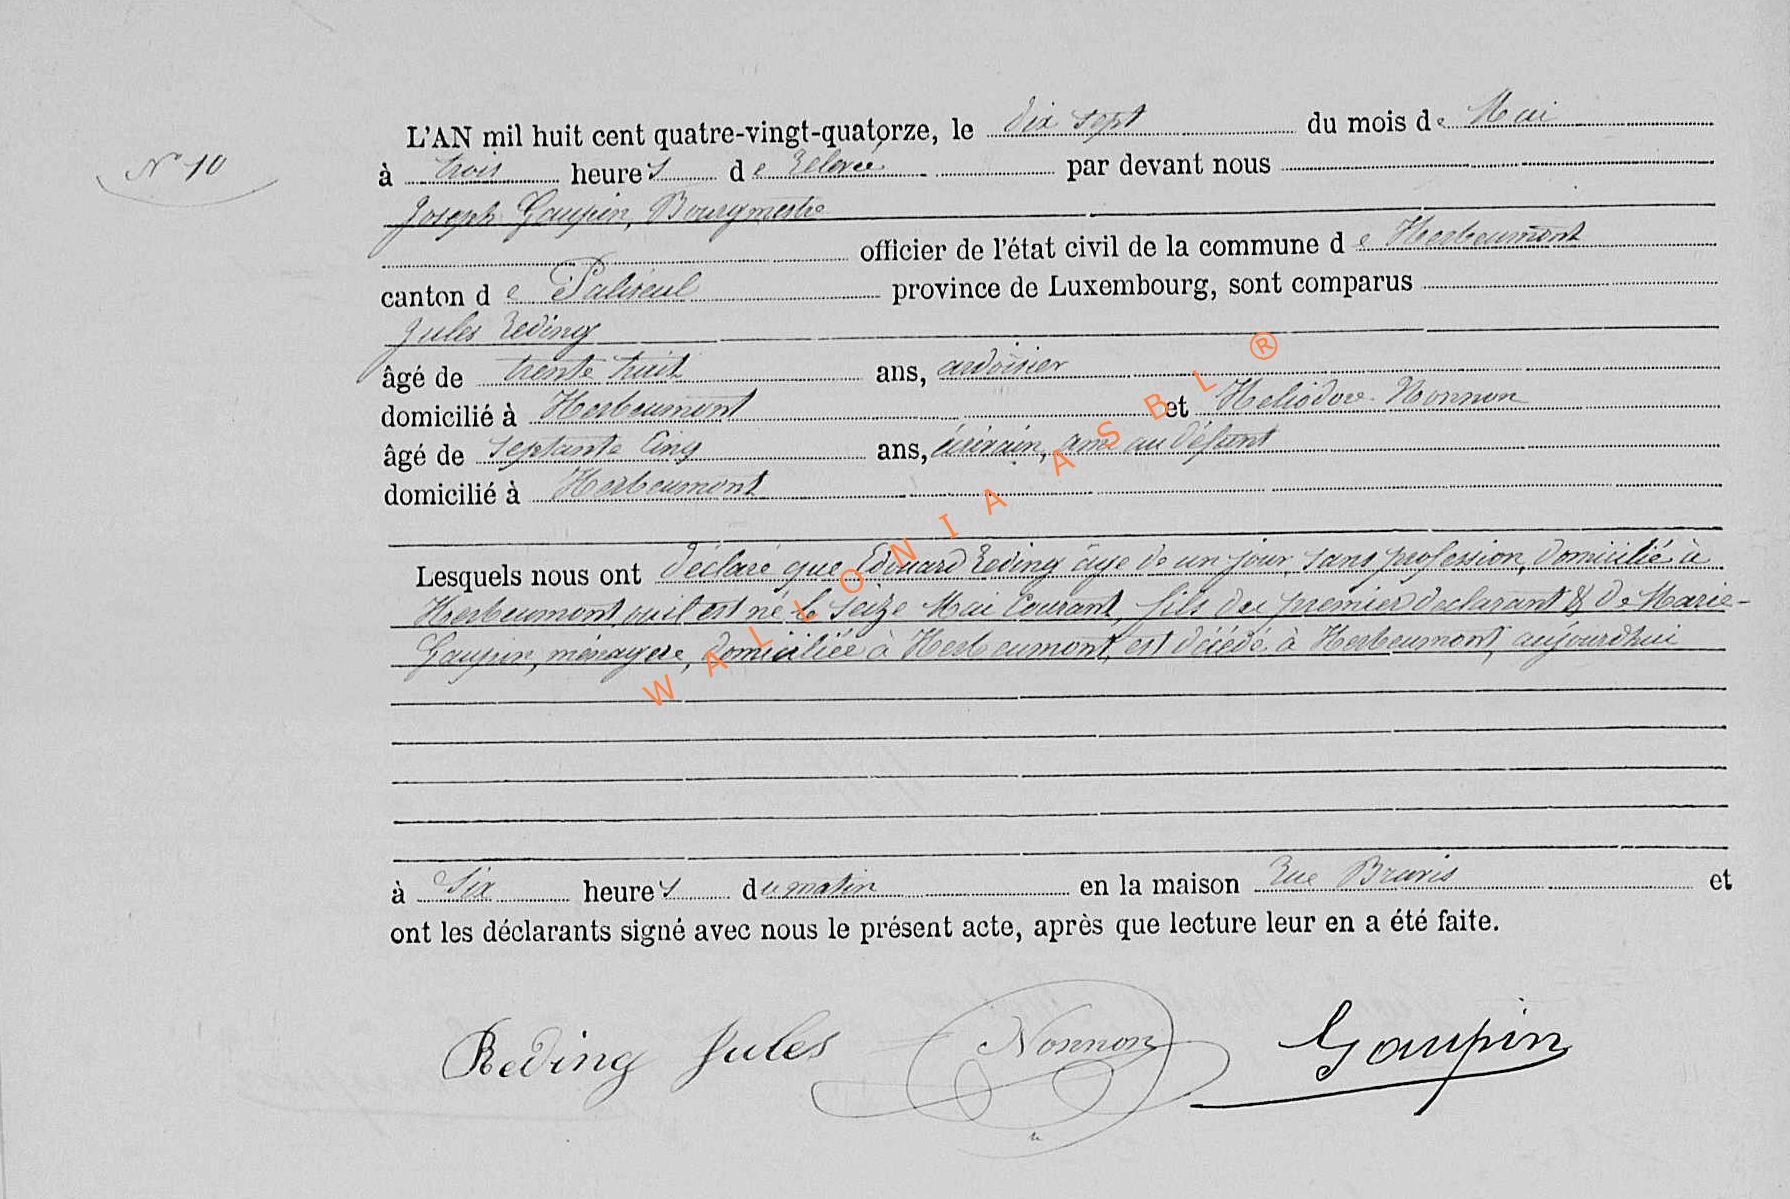 N° 10
L'AN mil huit cent quatre-vingt-quatorze, le dix sept du mois de Mai
à trois heures de relevée par devant nous
Joseph Gaupin, Bourgmestre
officier de l'état civil de la commune de Herbeumont
canton de Paliseul province de Luxembourg, sont comparus
Jules Reding
âgé de trente huit ans, ardoisier
domicilié à Herbeumont et Héliodore Nonnon
âgé de septante cinq ans, écrivain, ami au défunt
domicilié à Herbeumont
Lesquels nous ont déclaré que Edouard Reding âgé de un jour, sans profession, domicilié à
Herbeumont, où il est né le seize Mai courant, fils du premier déclarant & de Marie-
Gaupin, ménagère, domiciliée à Herbeumont, est décédé à Herbeumont, aujourdhui
à Six heures du matin en la maison rue et
ont les déclarants signé avec nous le présent acte, après que lecture leur en a été faite.
Reding Jules Nonnon Gaupin
WALLONIA ASBL ®